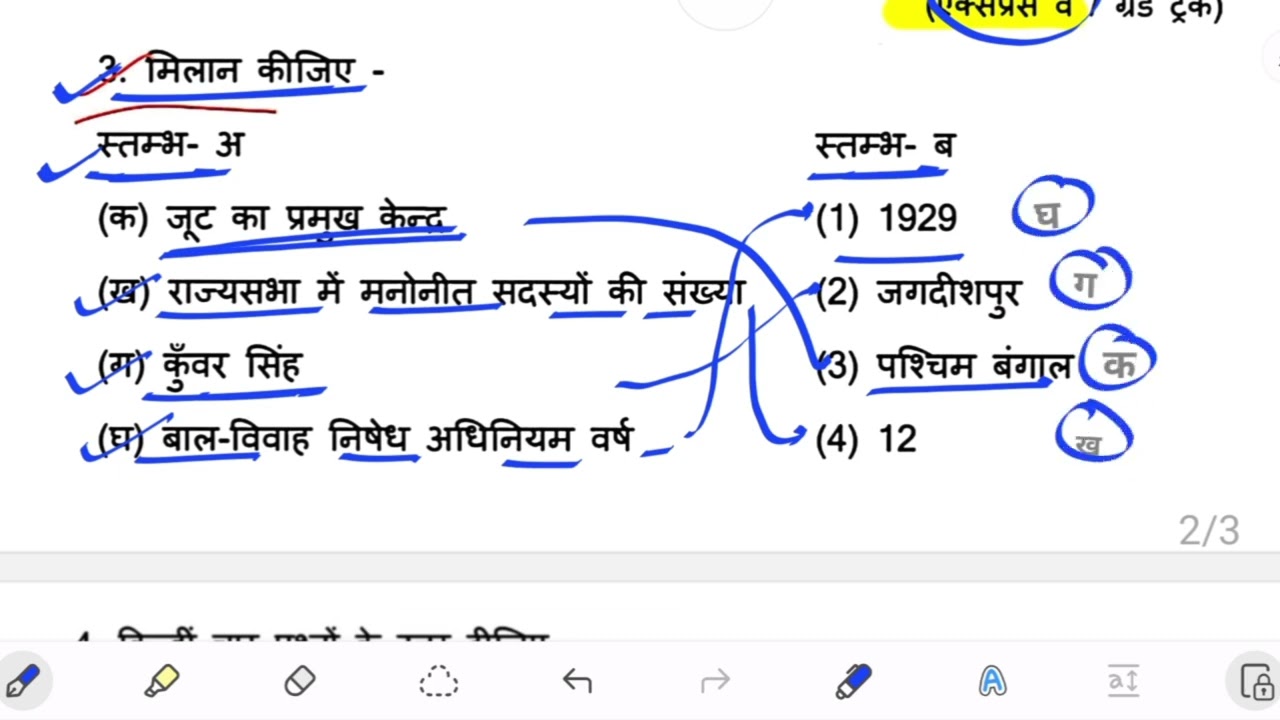 (एक्सप्रेस व
3. मिलान कीजिए -
स्तम्भ- अ स्तम्भ- ब
(क) जूट का प्रमुख केन्द्र (1) 1929 घ
(ख) राज्यसभा में मनोनीत सदस्यों की संख्या (2) जगदीशपुर ग
(ग) कुँवर सिंह (3) पश्चिम बंगाल क
(घ) बाल-विवाह निषेध अधिनियम वर्ष (4) 12 ख
2/3